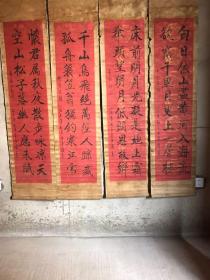 白日依山盡黃河入海流
欲窮千里目更上一層樓
床前明月光疑是地上霜
舉頭望明月低頭思故鄉
千山鳥飛絕萬徑人蹤滅
孤舟蓑笠翁獨釣寒江雪
懷君屬秋夜散步詠涼天
空山松子落幽人應未眠